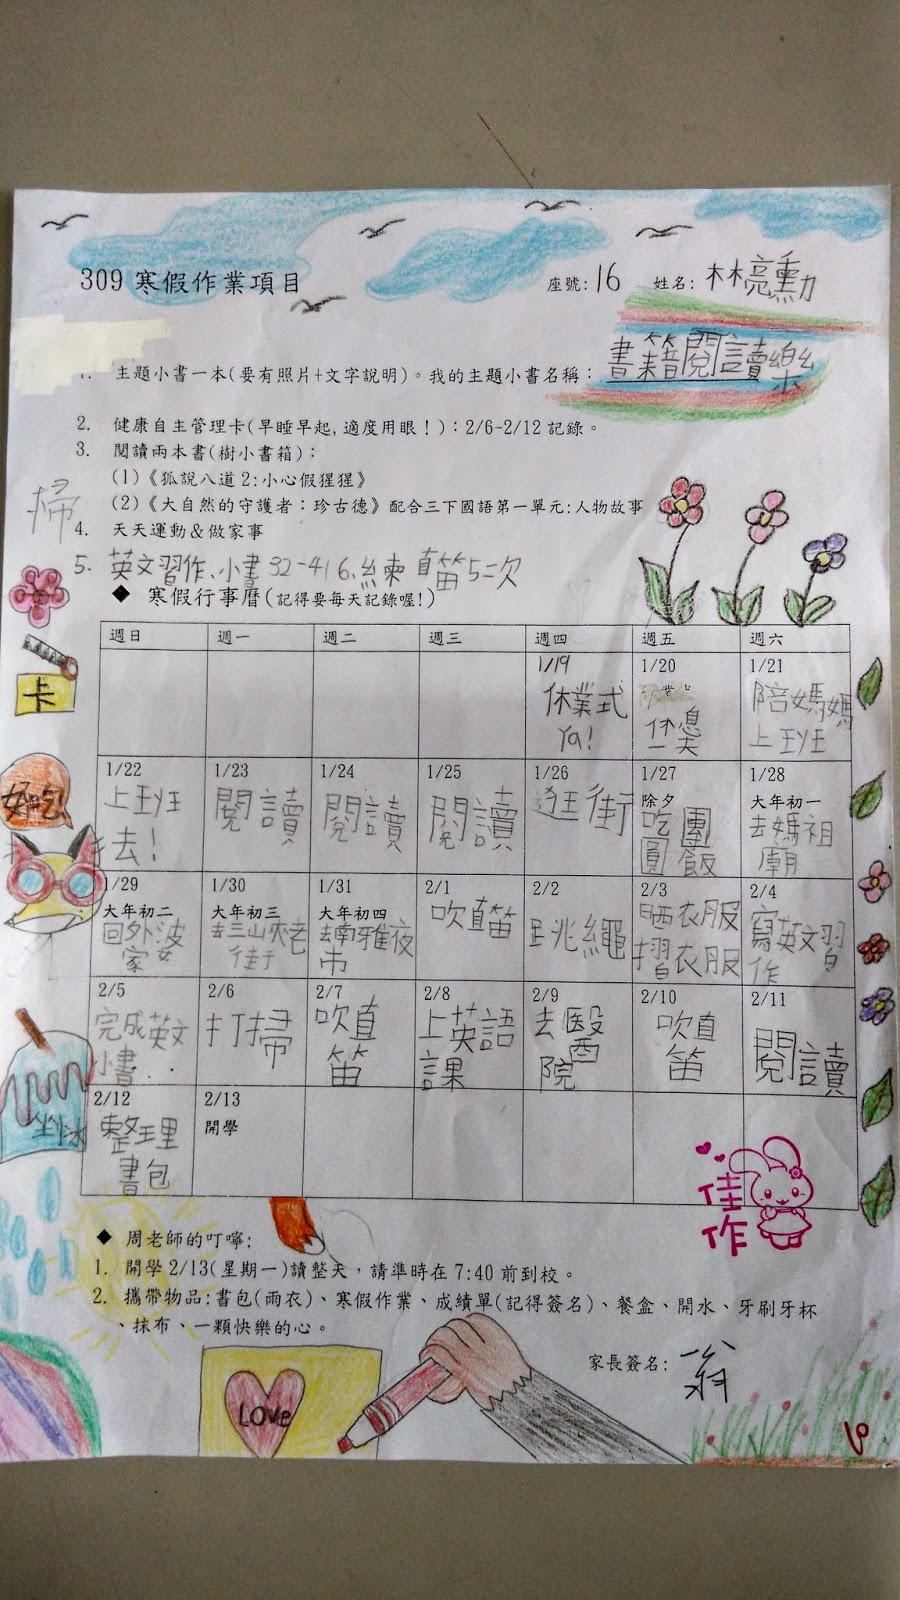 309 寒假作業項目
座號: 16 姓名: 林亮勳
1. 主題小書一本(要有照片+文字說明)。我的主題小書名稱: 書籍閱讀樂
2. 健康自主管理卡(早睡早起,適度用眼!):2/6-2/12 記錄。
3. 閱讀兩本書(樹小書箱):
(1)《狐說八道 2:小心假猩猩》
(2)《大自然的守護者:珍古德》配合三下國語第一單元:人物故事
掃
4. 天天運動&做家事
5. 英文習作、小書32-41 6、練直笛5二次
◆ 寒假行事曆(記得要每天記錄喔!)
週日 週一 週二 週三 週四 週五 週六
1/19 1/20 1/21
休業式 Ya! 休息 陪媽媽上班
卡
1/22 1/23 1/24 1/25 1/26 1/27 1/28
除夕 大年初一
上班去! 閱讀 閱讀 閱讀 逛街 吃團圓飯 去媽祖廟
好吃
1/29 1/30 1/31 2/1 2/2 2/3 2/4
大年初二 大年初三 大年初四
回外婆家 去三峽老街 去南雅夜市 吹直笛 跳繩 晒衣服 摺衣服 寫英文習作
2/5 2/6 2/7 2/8 2/9 2/10 2/11
完成英文小書... 打掃 吹直笛 上英語課 去醫院 吹直笛 閱讀
剉冰
2/12 2/13
整理書包 開學
佳作
◆ 周老師的叮嚀:
1. 開學 2/13(星期一)讀整天,請準時在 7:40 前到校。
2. 攜帶物品:書包(雨衣)、寒假作業、成績單(記得簽名)、餐盒、開水、牙刷牙杯
、抹布、一顆快樂的心。
家長簽名: 翁
Love